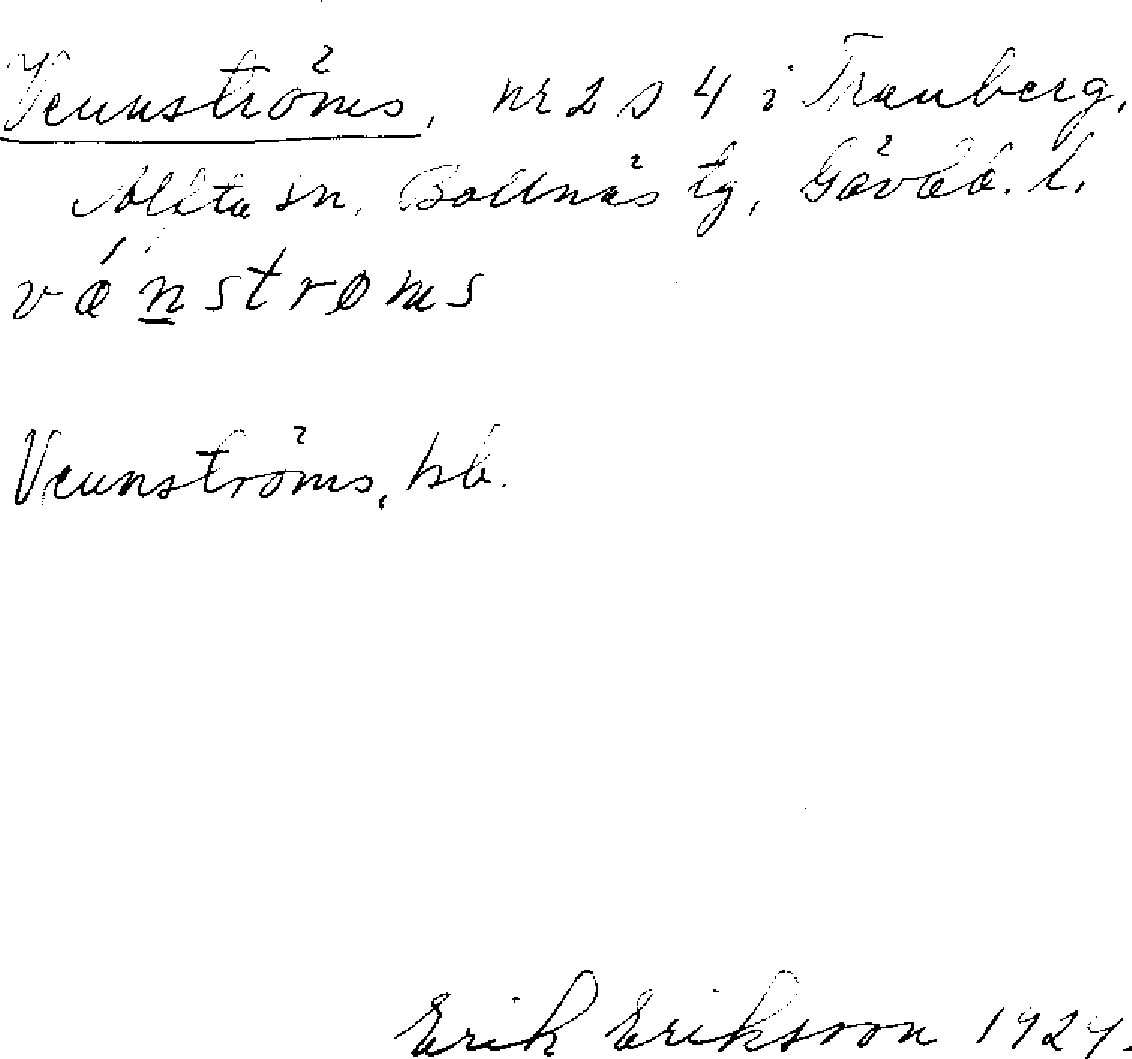 Vennströms, nr 2 s 4 i Tranberg,
Alfta sn, Bollnäs tg, Gävleb. l.
vǽnstrøms
Vennströms, hb.
Erik Eriksson 1924.